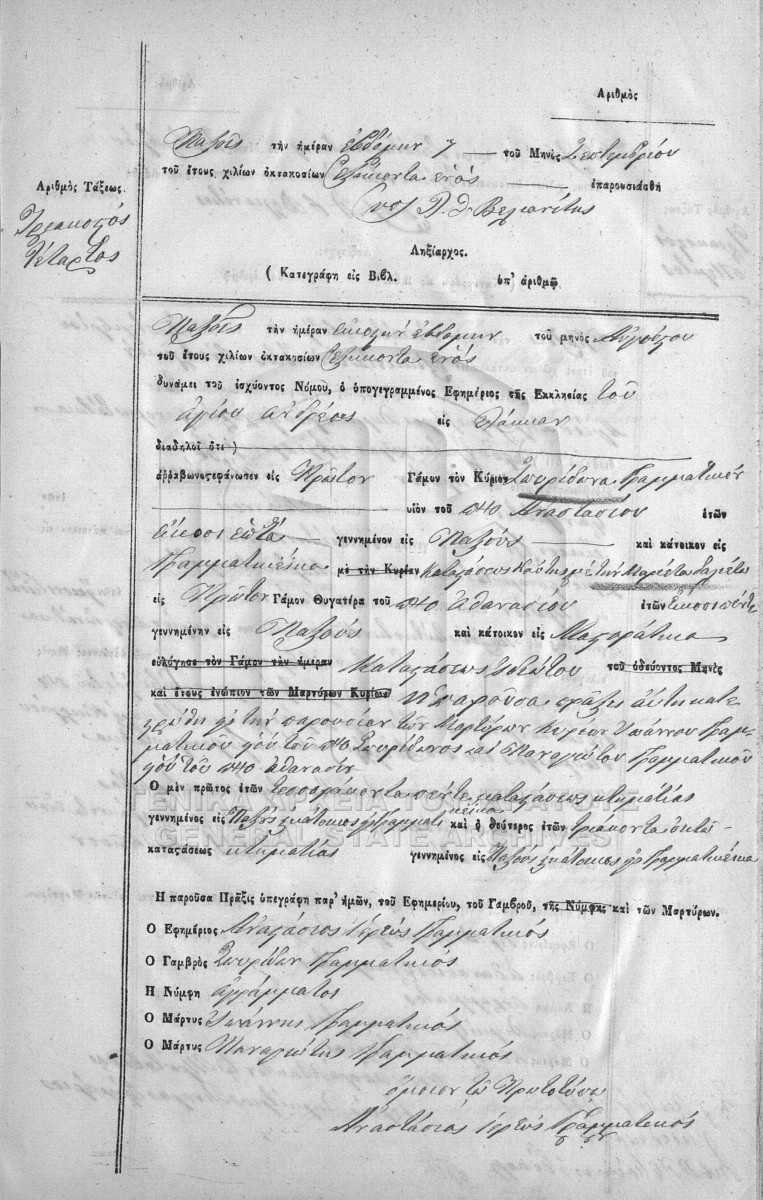 Ἀριθμὸς
Παξοῖς τὴν ἡμέραν ἑβδόμην 7 τοῦ Μηνὸς Σεπτεμβρίου
τοῦ ἔτους χιλίων ὀκτακοσίων ἑξήκοντα ἑνὸς ἐπαρουσιάσθη
Βελιανίτης
Ἀριθμὸς Τάξεως.
Τριακοστὸς
Τέταρτος
Ληξίαρχος.
( Κατεγράφη εἰς Βιβλ. ὑπ' ἀριθμῷ
Παξοῖς τὴν ἡμέραν εἰκοστὴν ἑβδόμην τοῦ μηνὸς Αὐγούστου
τοῦ ἔτους χιλίων ὀκτακοσίων ἑξήκοντα ἑνὸς
δυνάμει τοῦ ἰσχύοντος Νόμου, ὁ ὑπογεγραμμένος Ἐφημέριος τῆς Ἐκκλησίας τοῦ
ἁγίου Ἀνδρέου εἰς Λάκκαν
διαδηλοῖ ὅτι )
ἀῤῥαβωνοςεφάνωσεν εἰς Πρῶτον Γάμον τὸν Κύριον Σπυρίδωνα Γραμματικὸν
υἱὸν τοῦ ποτὲ Ἀναστασίου ἐτῶν
εἴκοσι ἑπτὰ γεννημένον εἰς Παξοὺς καὶ κάτοικον εἰς
Γραμματικέικα μὲ τὴν Κυρίαν καταστάσεως μὲ τὴν Μαριέτα
εἰς Πρῶτον Γάμον Θυγατέρα τοῦ ποτὲ Ἀθανασίου ἐτῶν εἴκοσι πέντε
γεννημένην εἰς Παξοὺς καὶ κάτοικον εἰς Μαστοράτικα
εὐλόγησε τὸν Γάμον τὴν ἡμέραν καταστάσεως τοῦ ὁδεύοντος Μηνὸς
καὶ ἔτους ἐνώπιον τῶν Μαρτύρων Κυρίων Ἡ παροῦσα πράξις αὕτη κατε
γράφη μὲ τὴν παρουσίαν τῶν Μαρτύρων Κυρίων Ἰωάννου Γραμ-
ματικοῦ υἱοῦ τοῦ ποτὲ Σπυρίδωνος καὶ Παναγιώτου Γραμματικοῦ
υἱοῦ τοῦ ποτὲ Ἀθανασίου
Ὁ μὲν πρῶτος ἐτῶν τεσσαράκοντα πέντε καταστάσεως κτηματίας
γεννημένος εἰς Παξοὺς κάτοικος εἰς Γραμματικέικα καὶ ὁ δεύτερος ἐτῶν τριάκοντα ὀκτὼ
καταςάσεως κτηματίας γεννημένος εἰς Παξοὺς κάτοικος εἰς Γραμματικέικα
ΓΕΝΙΚΑ ΑΡΧΕΙΑ ΤΟΥ ΚΡΑΤΟΥΣ
GENERAL STATE ARCHIVES
Ἡ παροῦσα Πράξις ὑπεγράφη παρ' ἡμῶν, τοῦ Ἐφημερίου, τοῦ Γαμβροῦ, τῆς Νύμφης καὶ τῶν Μαρτύρων.
Ὁ Ἐφημέριος Ἀναστάσιος Ἱερεὺς Γραμματικός
Ὁ Γαμβρὸς Σπυρίδων Γραμματικός
Ἡ Νύμφη ἀγράμματος
Ὁ Μάρτυς Ἰωάννης Γραμματικός
Ὁ Μάρτυς Παναγιώτης Γραμματικός
ὅμοιον τῷ Πρωτοτύπῳ
Ἀναστάσιος Ἱερεὺς Γραμματικός